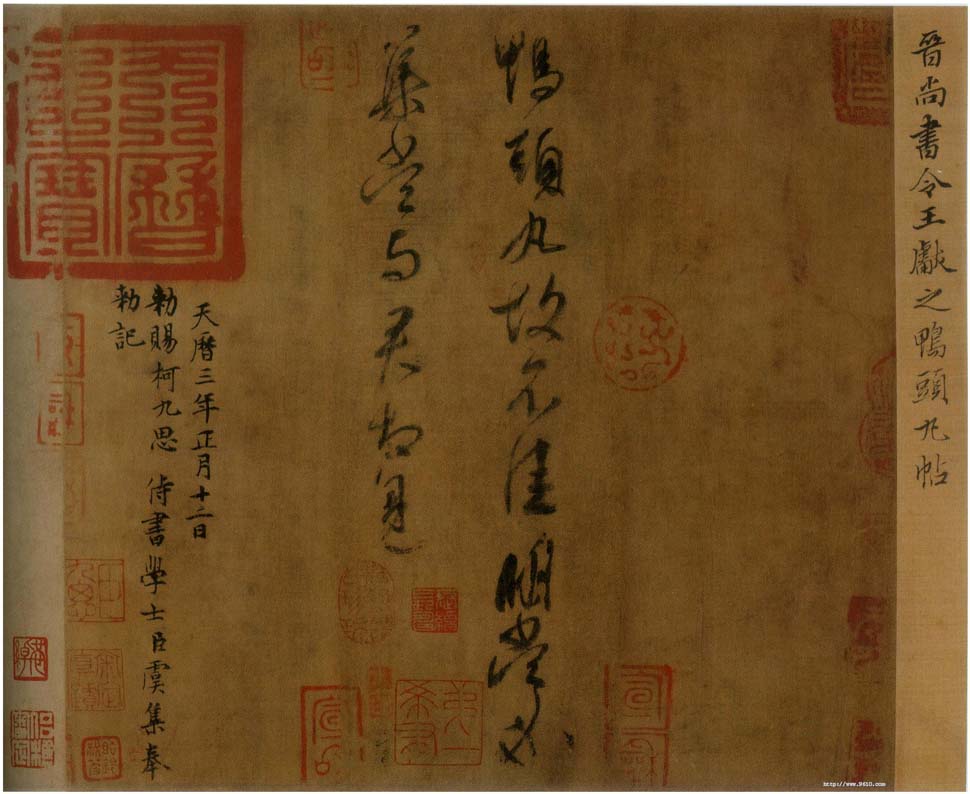 晉尚書令王獻之鴨頭丸帖
鴨頭丸故不佳明當必
集當與君相見
天曆三年正月十二日
勅賜柯九思侍書學士臣虞集奉
勅記
天曆之寶
http://www.9610.com